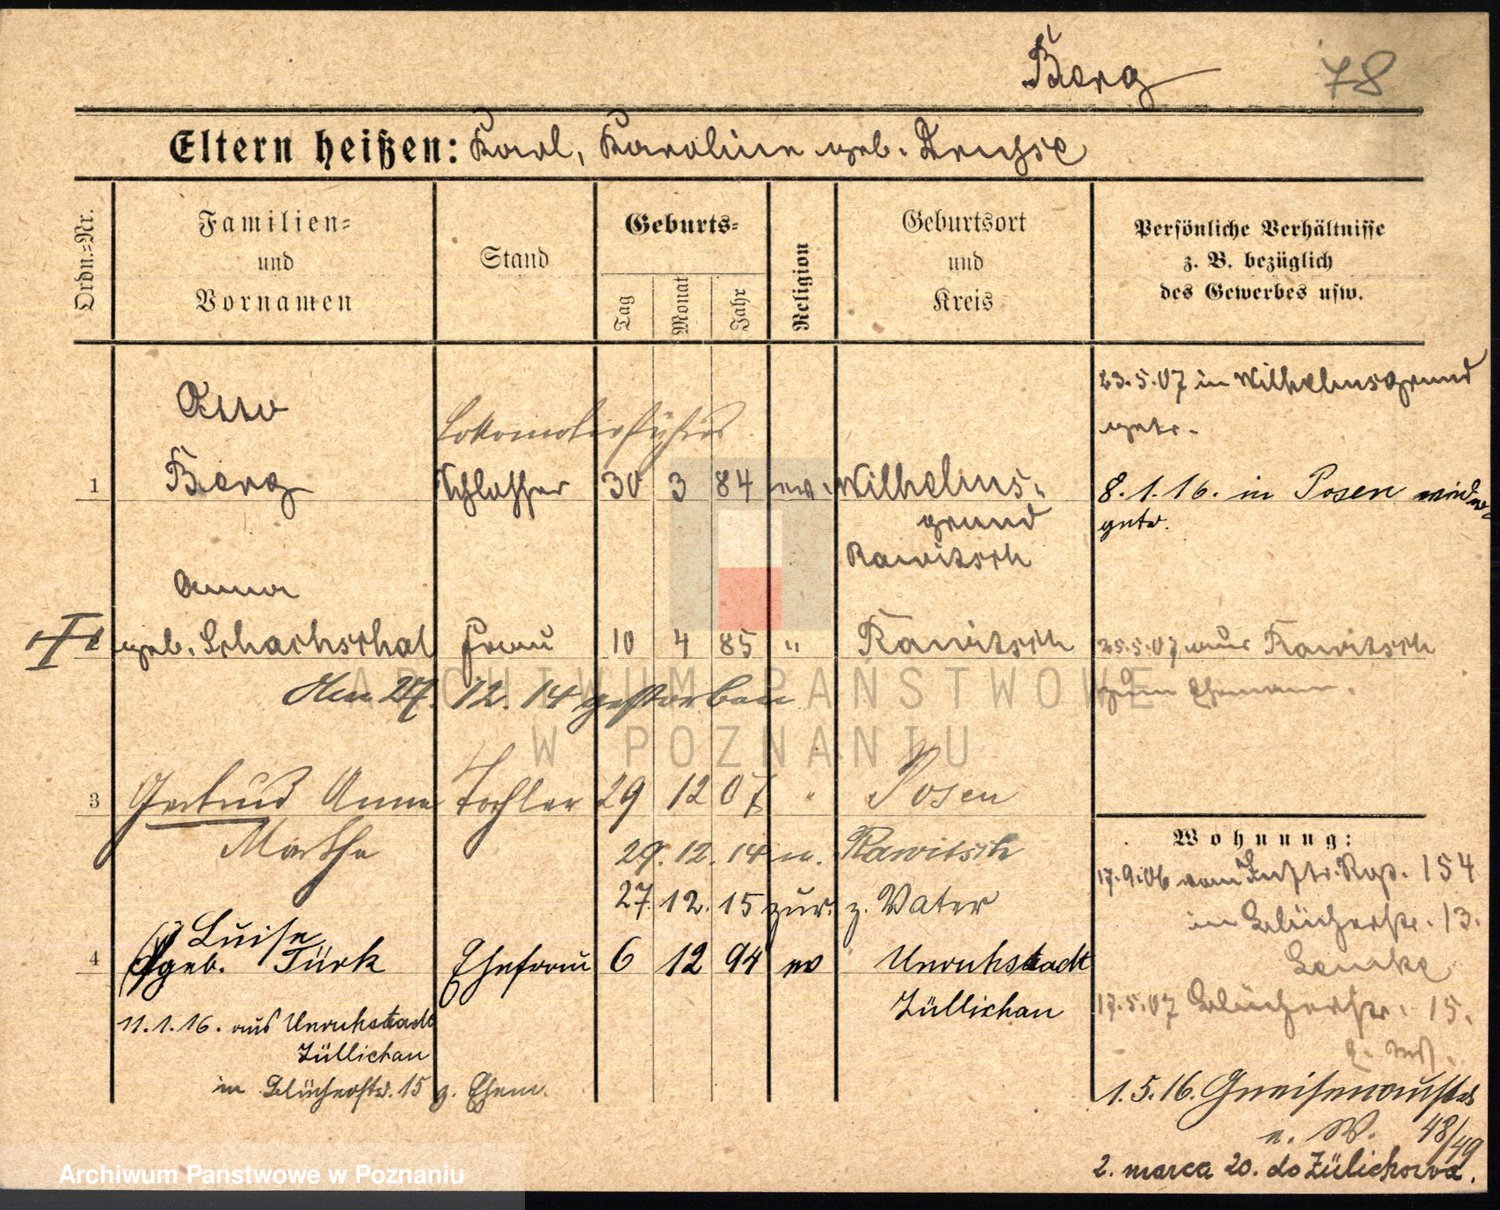 Berg 78
Eltern heißen: Karl, Karoline geb.
Ordn.=Nr.
Familien=
und
Vornamen
Stand
Geburts=
Tag
Monat
Jahr
Religion
Geburtsort
und
Kreis
Persönliche Verhältnisse
z. B. bezüglich
des Gewerbes usw.
Otto
Lokomotivführer
23.5.07 in Wilhelmsgrund
getr.
1 Berg Schlosser 30 3 84 ev. Wilhelms-
grund
Rawitsch
8.1.16. in Posen wieder
getr.
Anna
geb. Schachschal Frau 10 4 85 " Rawitsch
25.5.07 aus Rawitsch
zum Ehemann.
Am 27. 12. 14 gestorben
3 Gertrud Anna Tochter 29 12 07 " Posen
Martha
29. 12. 14 n. Rawitsch
27. 12. 15 zur. z. Vater
Luise
4 geb. Türk Ehefrau 6 12 94 ev Unruhstadt
Züllichau
11.1.16. aus Unruhstadt
Züllichau
in Blücherstr. 15 z. Ehem.
Wohnung:
17.9.06 vom Inftr. Rgt. 154
in Blücherstr. 13.
17.5.07 Blücherstr. 15.
1.5.16. Gneisenaustr
e. W. 48/49
2. marca 20. do Zülichowa.
ARCHIWUM PAŃSTWOWE
W POZNANIU
Archiwum Państwowe w Poznaniu